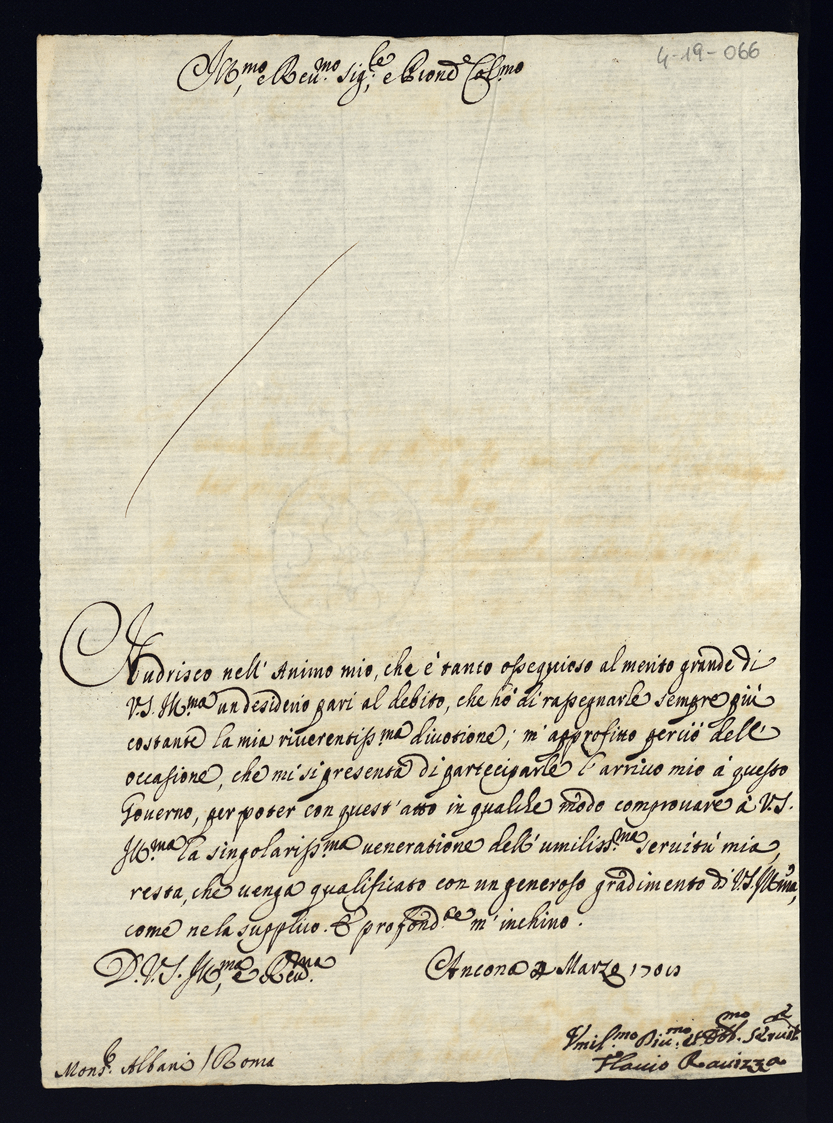 4-19-066
Ill.mo e Reu.mo Sig.re e Prond.e Col.mo
Nudrisco nell' Animo mio, che è tanto ossequioso al merito grande di
V.S. Ill.ma un desiderio pari al debito, che hò di rassegnarle sempre più
costante la mia riuerentiss.ma diuotione; m' approfitto perciò dell'
occasione, che mi si presenta di partecipanle l' arriuo mio à questo
Gouerno, per poter con quest' atto in qualche modo comprouare à V.S.
Ill.ma la singolariss.ma ueneratione dell' umiliss.ma seruitù mia,
resta, che uenga qualificato con un generoso gradimento di V.S. Ill.ma,
come ne la supplico. E profond.te m' inchino.
D. V.S. Ill.ma, e Reu.ma
Ancona 4 Marzo
Umil.mo Diu.mo et Obb. Seruit.
Flauio Rauizza
Mons.r Albani / Roma